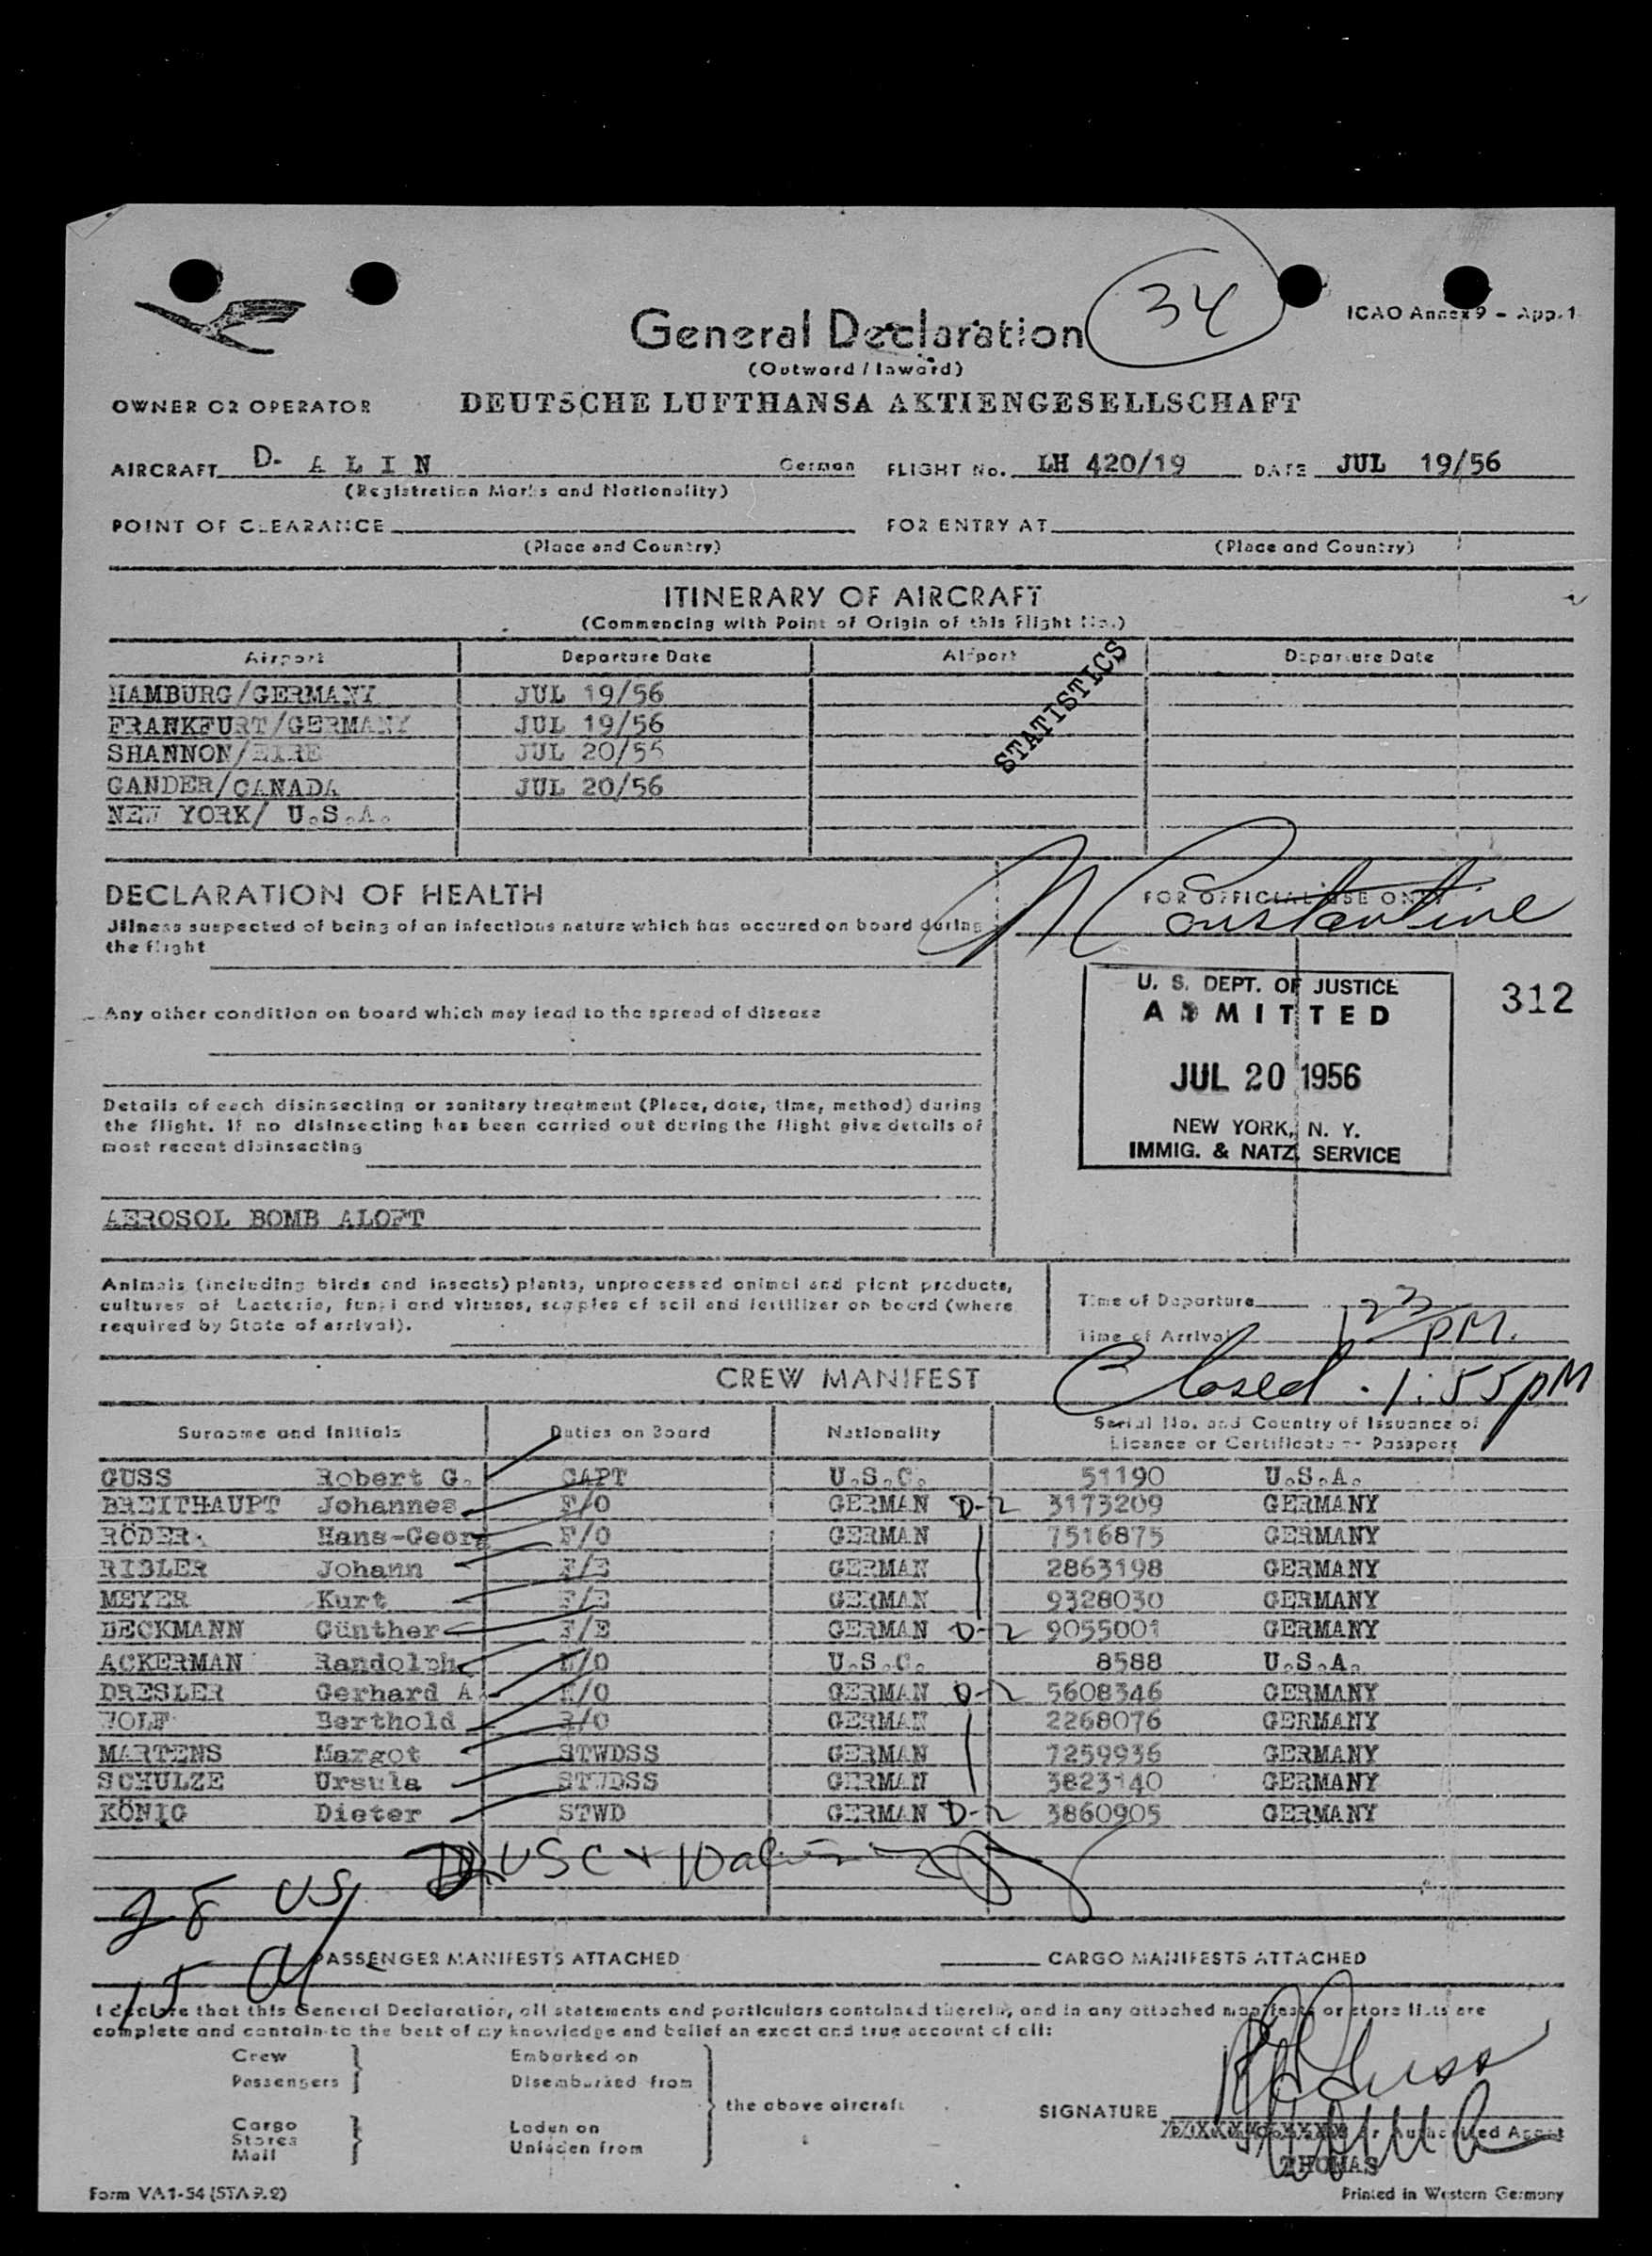 34
ICAO Annex 9 - App. 1
General Declaration
(Outward / Inward)
OWNER OR OPERATOR DEUTSCHE LUFTHANSA AKTIENGESELLSCHAFT
AIRCRAFT D- A L I N German FLIGHT No. LH 420/19 DATE JUL 19/56
(Registration Marks and Nationality)
POINT OF CLEARANCE FOR ENTRY AT
(Place and Country) (Place and Country)
ITINERARY OF AIRCRAFT
(Commencing with Point of Origin of this Flight No.)
Airport Departure Date Airport Departure Date
HAMBURG/GERMANY JUL 19/56
FRANKFURT/GERMANY JUL 19/56
SHANNON/EIRE JUL 20/56
GANDER/CANADA JUL 20/56
NEW YORK/ U.S.A.
STATISTICS
DECLARATION OF HEALTH FOR OFFICIAL USE ONLY
Constantine
Jllness suspected of being of an infectious nature which has occured on board during
the flight
Any other condition on board which may lead to the spread of disease
U. S. DEPT. OF JUSTICE
ADMITTED
JUL 20 1956
NEW YORK, N. Y.
IMMIG. & NATZ. SERVICE
312
Details of each disinsecting or sanitary treatment (Place, date, time, method) during
the flight. If no disinsecting has been carried out during the flight give details of
most recent disinsecting
AEROSOL BOMB ALOFT
Animals (including birds and insects) plants, unprocessed animal and plant products,
cultures of bacteria, fungi and viruses, samples of soil and fertilizer on board (where
required by State of arrival).
Time of Departure
Time of Arrival 1 23 PM.
CREW MANIFEST
Closed. 1:55 pM
Surname and Initials Duties on Board Nationality Serial No. and Country of Issuance of
Licence or Certificate -- Passport
GUSS Robert G. CAPT U.S.C. 51190 U.S.A.
BREITHAUPT Johannes F/O GERMAN D-2 3173209 GERMANY
RÖDER Hans-Georg F/O GERMAN 7516875 GERMANY
RIBLER Johann F/E GERMAN 2863198 GERMANY
MEYER Kurt F/E GERMAN 9328030 GERMANY
BECKMANN Günther F/E GERMAN D-2 9055001 GERMANY
ACKERMAN Randolph U.S.C. 8588 U.S.A.
DRESLER Gerhard A. GERMAN D-2 5608346 GERMANY
WOLF Berthold R/O GERMAN 2268076 GERMANY
MARTENS Margot STWDSS GERMAN 7259936 GERMANY
SCHULZE Ursula STWDSS GERMAN 3823140 GERMANY
KÖNIG Dieter STWD GERMAN D-2 3860905 GERMANY
USC + 10
28 US
15 a
PASSENGER MANIFESTS ATTACHED CARGO MANIFESTS ATTACHED
I declare that this General Declaration, all statements and particulars contained therein, and in any attached manifests or store lists are
complete and contain to the best of my knowledge and belief an exact and true account of all:
Crew Embarked on
Passengers Disembarked from
the above aircraft
Cargo Laden on
Stores
Mail Unladen from
SIGNATURE
or Authorized Agent
THOMAS
Form VA1-54 (STA 9.2) Printed in Western Germany